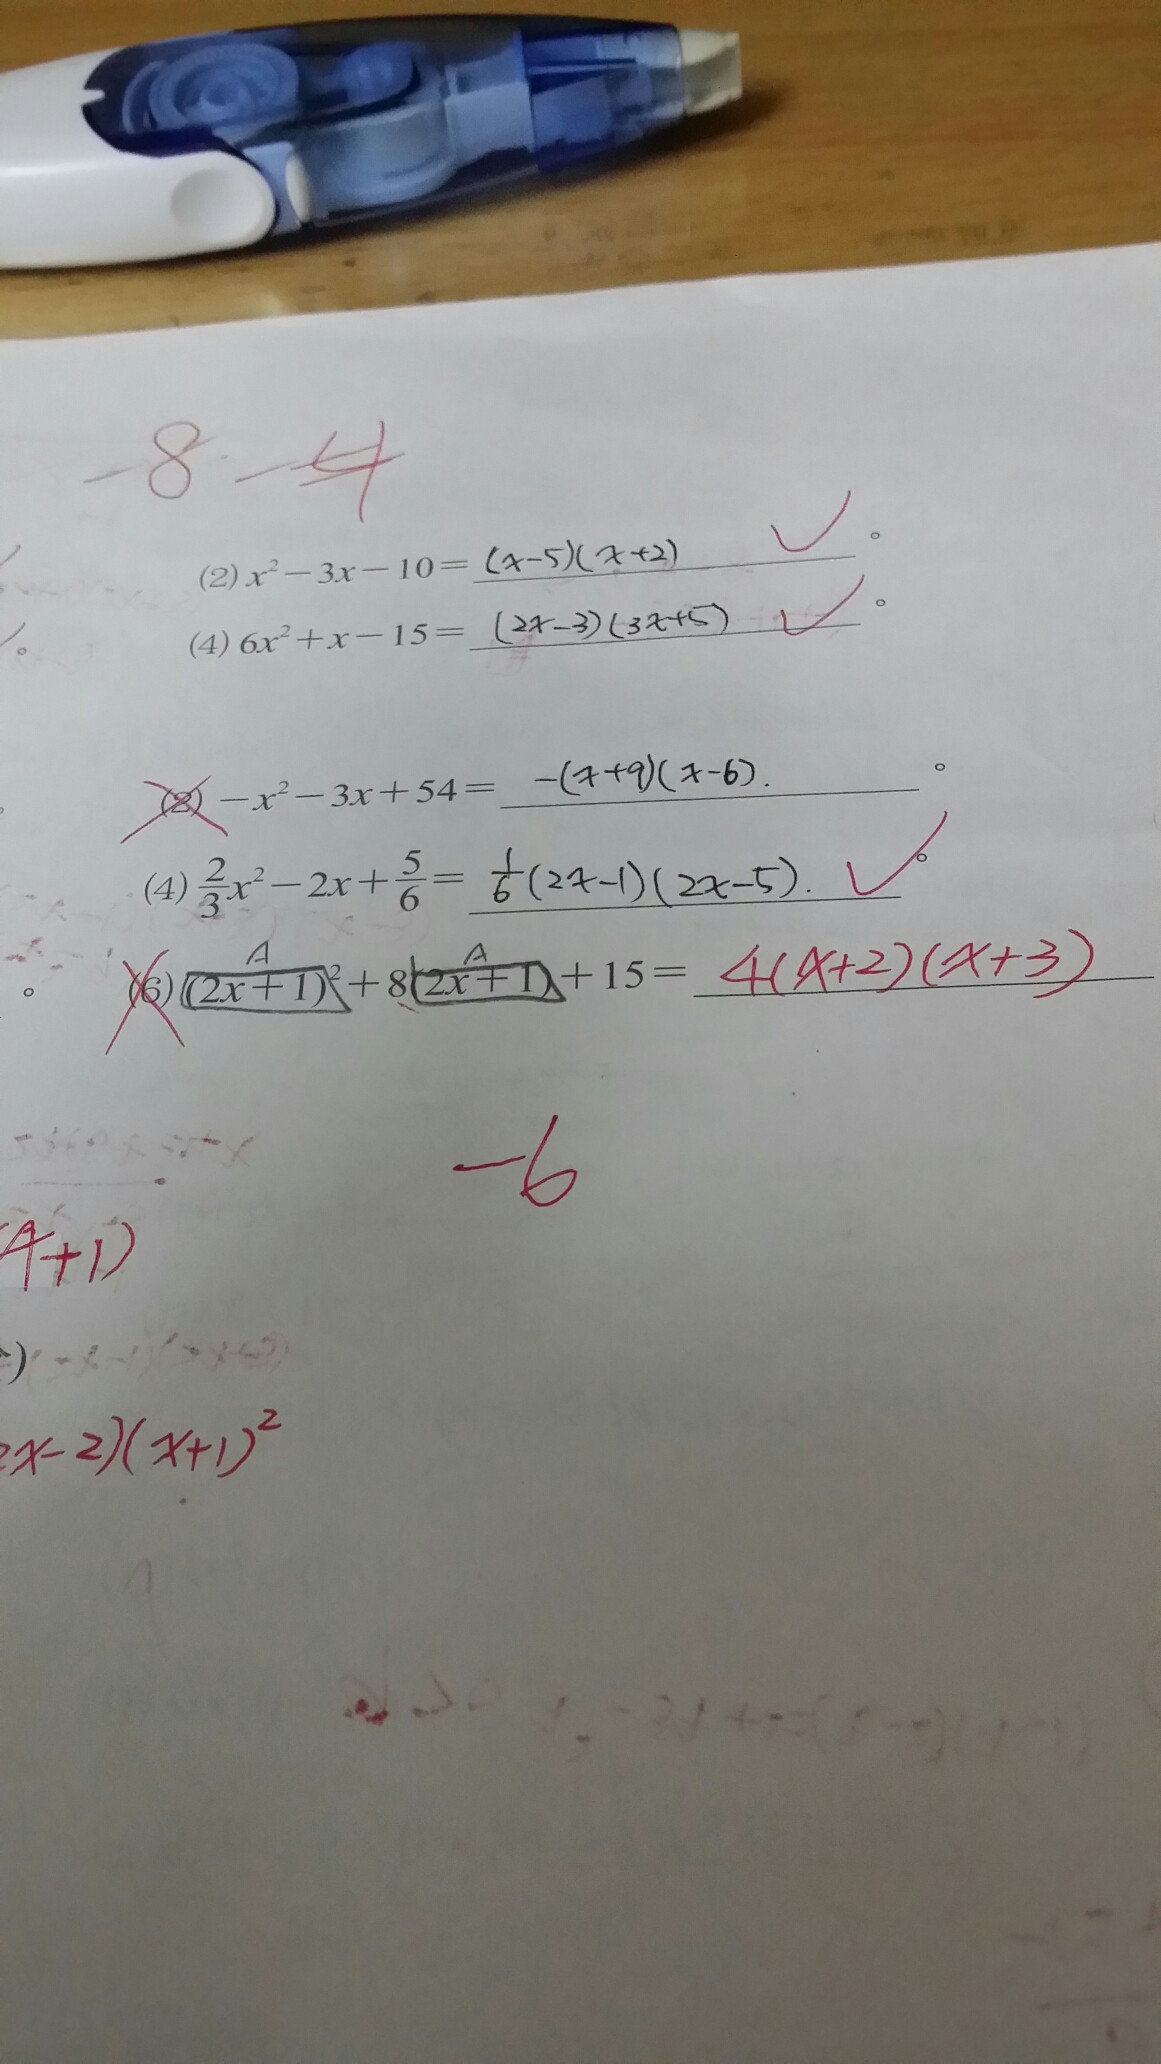 -8 -4
(2) x² - 3x - 10 = (x-5)(x+2) 。
(4) 6x² + x - 15 = (2x-3)(3x+5) 。
(2) -x² - 3x + 54 = -(x+9)(x-6). 。
(4) 2/3 x² - 2x + 5/6 = 1/6 (2x-1)(2x-5). 。
A A
(6) (2x+1)² + 8(2x+1) + 15 = 4(x+2)(x+3)
-6
A+1)
2x-2)(x+1)²